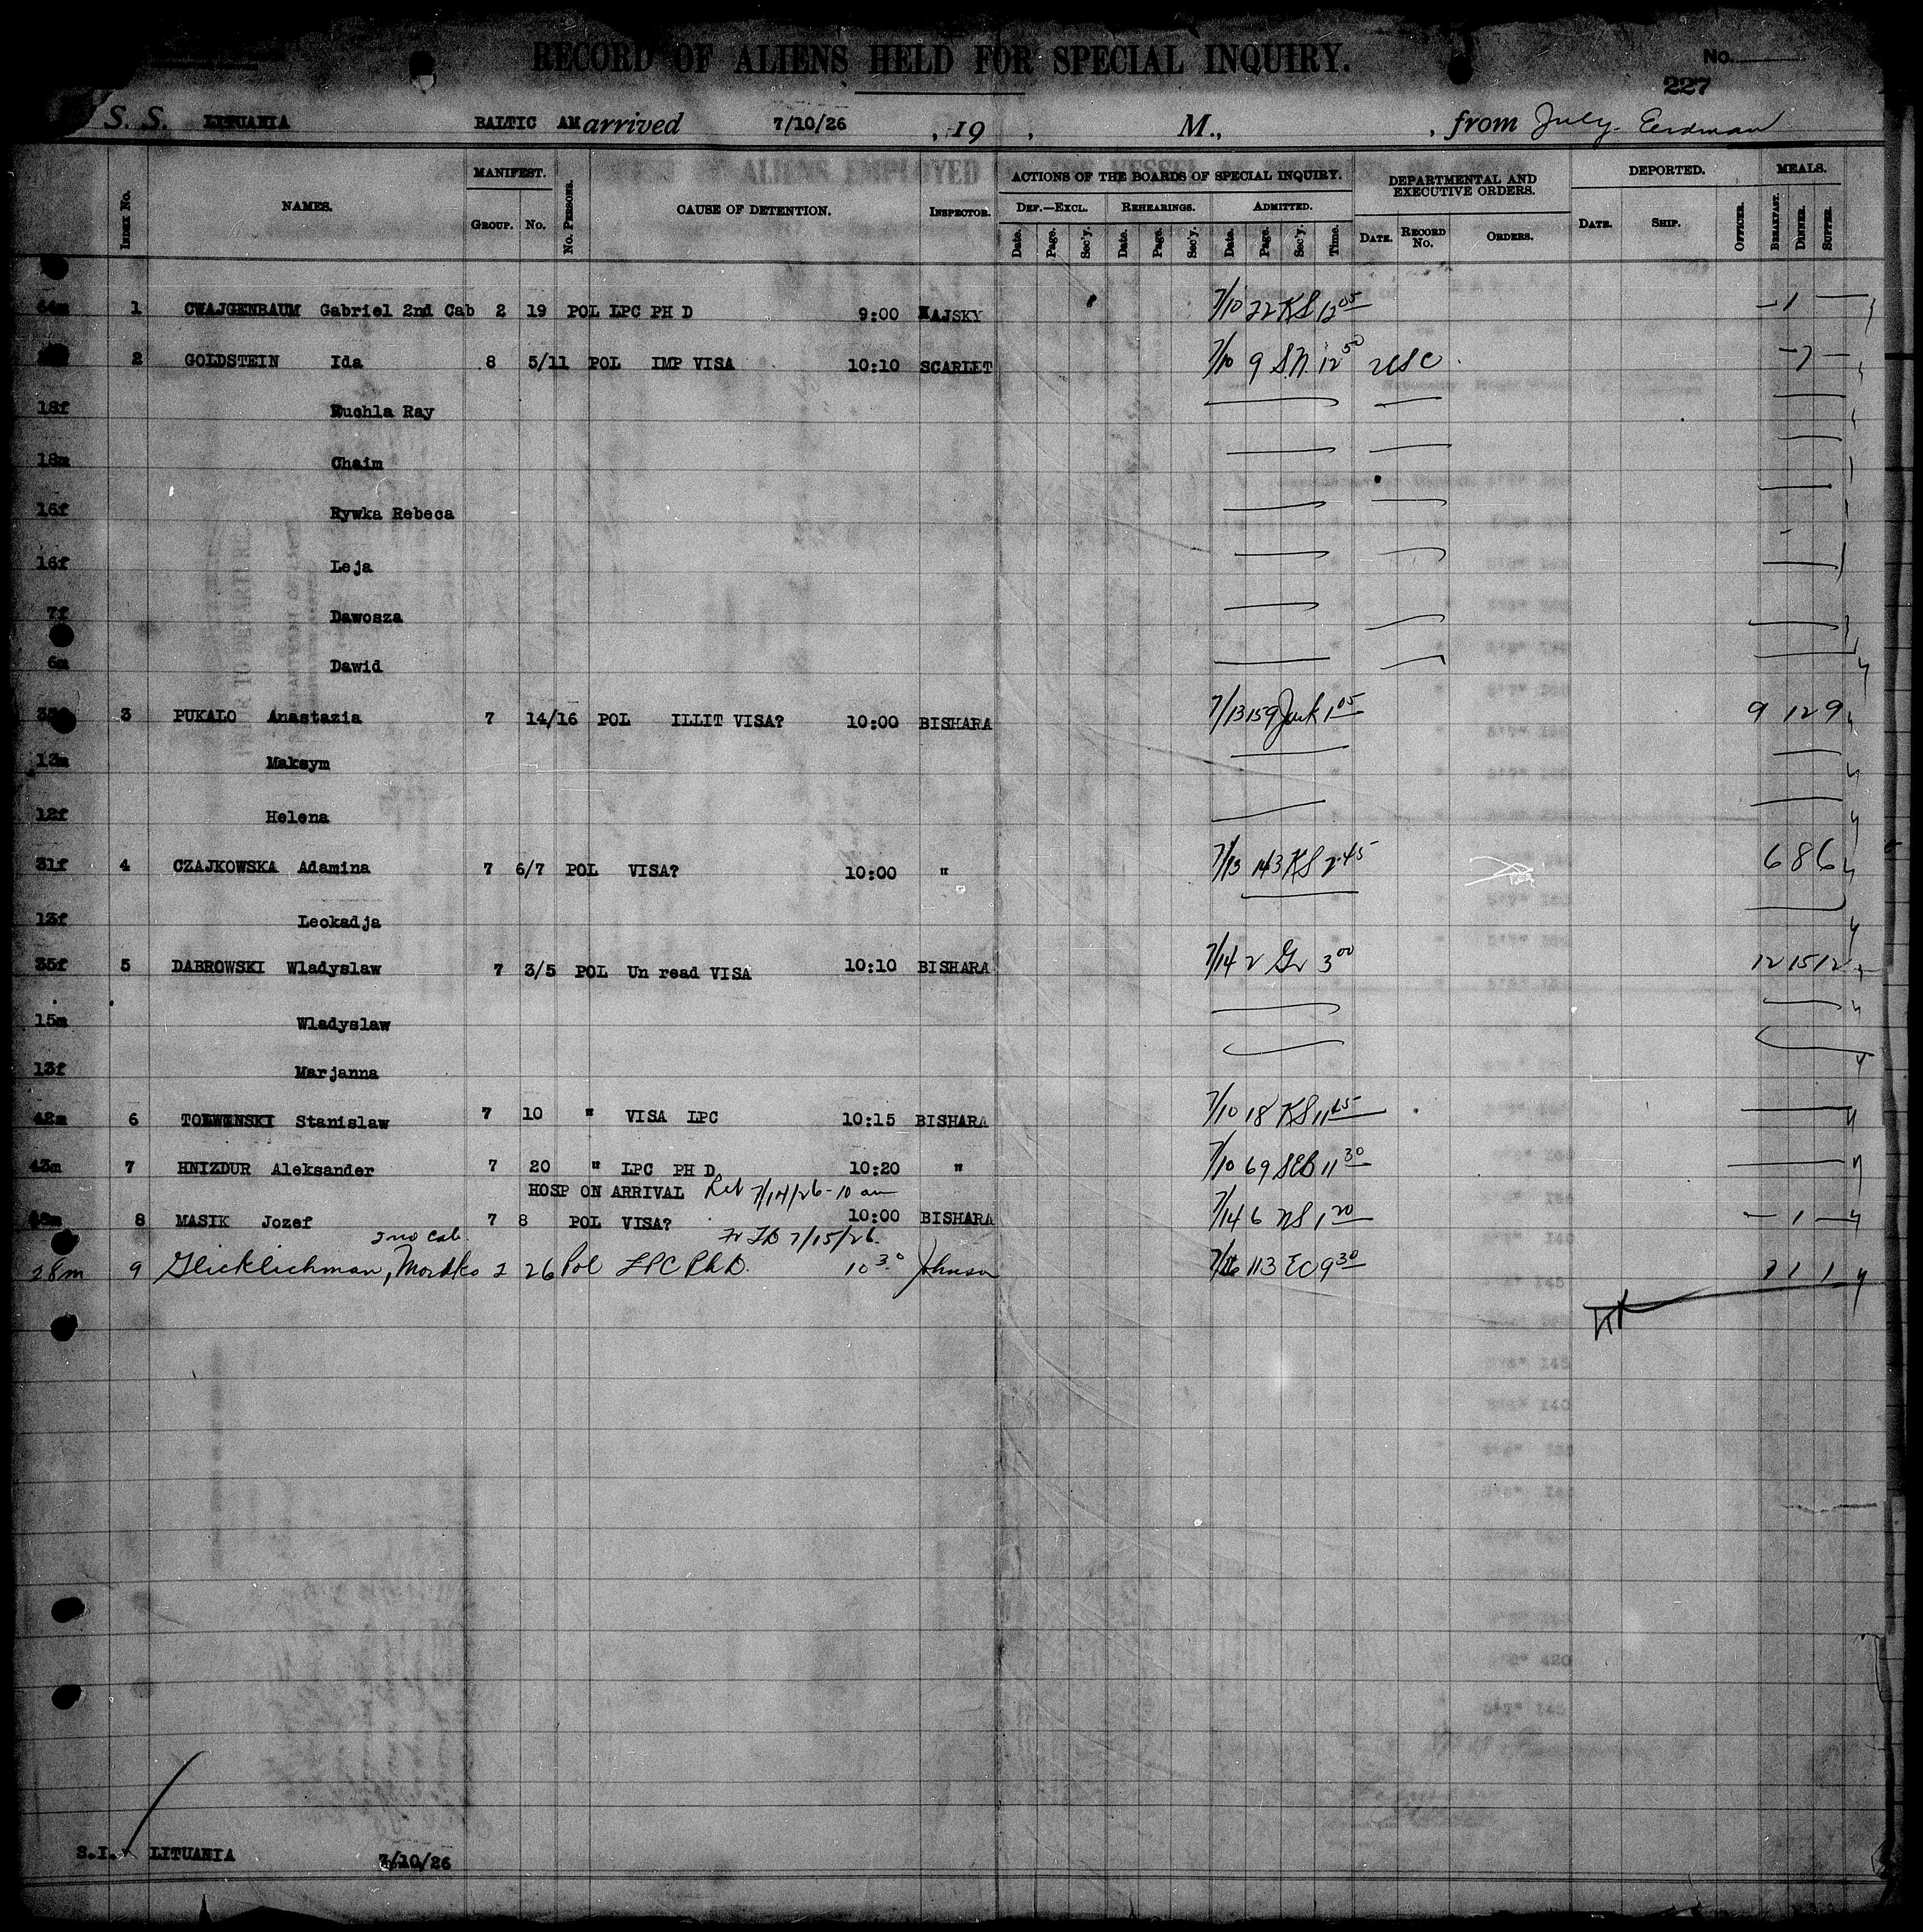 RECORD OF ALIENS HELD FOR SPECIAL INQUIRY.
No.
227
S. S. LITUANIA BALTIC AM arrived 7/10/26 , 19 , M., , from July. Eerdman
INDEX No. NAMES. MANIFEST. GROUP. No. No. PERSONS. CAUSE OF DETENTION. INSPECTOR. ACTIONS OF THE BOARDS OF SPECIAL INQUIRY. DEPARTMENTAL AND EXECUTIVE ORDERS. DEPORTED. MEALS.
DEF.—EXCL. REHEARINGS. ADMITTED.
Date. Page. Sec'y. Date. Page. Sec'y. Date. Page. Sec'y. Time. DATE. RECORD No. ORDERS. DATE. SHIP. OFFICER. BREAKFAST. DINNER. SUPPER.
44m 1 CWAJGENBAUM Gabriel 2nd Cab 2 19 POL LPC PH D 9:00 MAJSKY 7/10 22 KS 12 05 – 1 —
2 GOLDSTEIN Ida 8 5/11 POL IMP VISA 10:10 SCARLET 7/10 9 S.N. 12 50 USC – 7 –
18f Ruchla Ray
18m Chaim
16f Rywka Rebeca
16f Leja
7f Dawosza
6m Dawid
3 PUKALO Anastazia 7 14/16 POL ILLIT VISA? 10:00 BISHARA 7/13 159 1 05 9 12 9
13m Maksym
12f Helena
31f 4 CZAJKOWSKA Adamina 7 6/7 POL VISA? 10:00 " 7/13 143 KS 2.45 6 8 6
13f Leokadja
35f 5 DABROWSKI Wladyslaw 7 3/5 POL Un read VISA 10:10 BISHARA 7/14 2 Gr 3 00 12 15 12
15m Wladyslaw
13f Marjanna
42m 6 Stanislaw 7 10 " VISA LPC 10:15 BISHARA 7/10 18 KS 11 45
43m 7 HNIZDUR Aleksander 7 20 " LPC PH D 10:20 " 7/10 69 SEB 11 30
HOSP ON ARRIVAL Rel 7/14/26 - 10 am
8 MASIK Jozef 7 8 POL VISA? 10:00 BISHARA 7/14 6 NS 1 20 – 1 –
2nd Cab. 7/15/26.
28m 9 Glicklichman, Mordko 2 26 Pol LPC Ph D. 10 30 Johnson 7/16 113 EC 9 30 1 1 1
S.I. LITUANIA 7/10/26